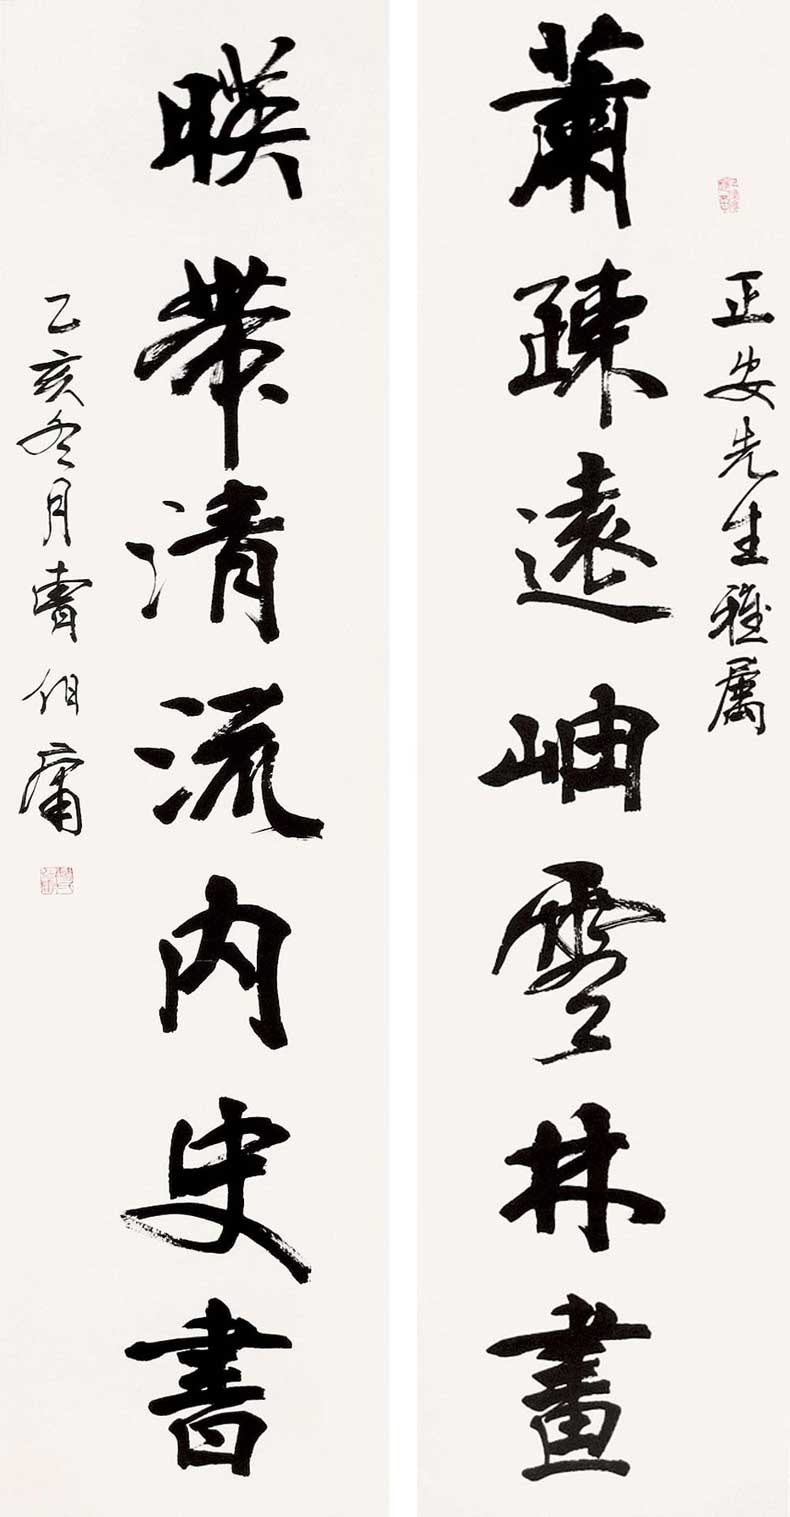 正安先生雅屬
蕭疎遠岫雲林畫
暎帶清流内史書
乙亥冬月曹伯庸